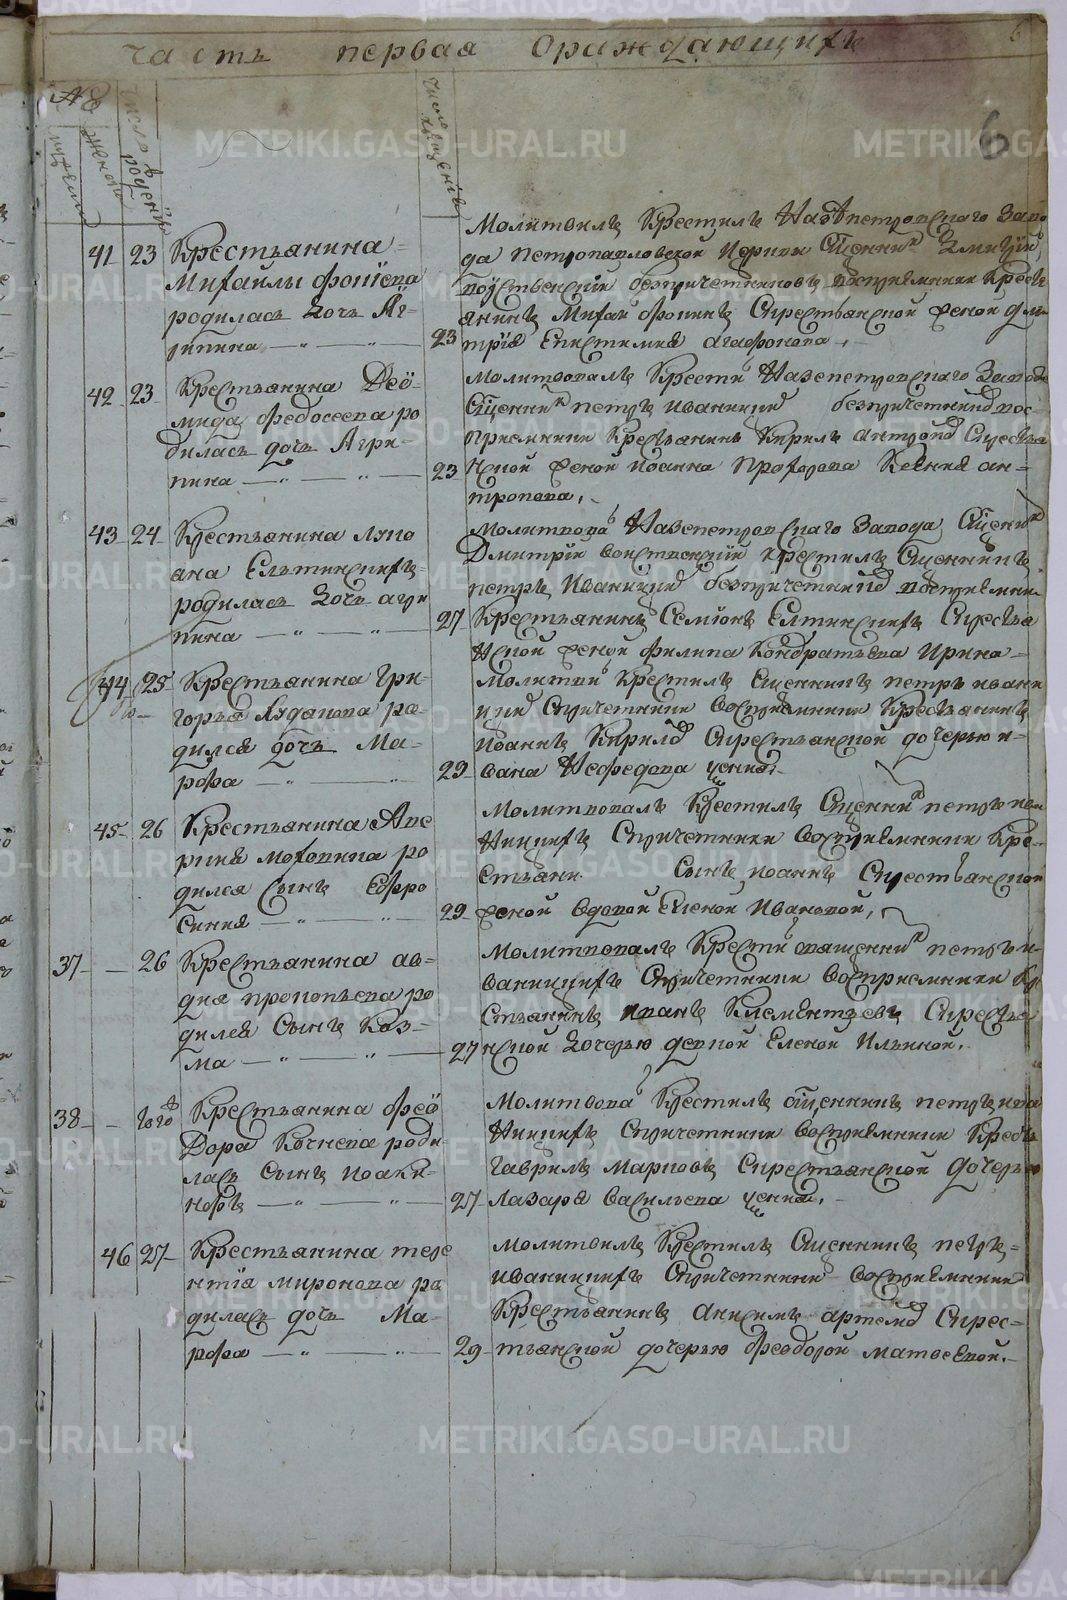 часть первая Ораждающихъ
6
6
№
мужска
женска
число
рожденія
число
крещенія
41 23 Крестьянина
Михаилы Фониева
родилась Дочь Аг-
рипина
23
Молитвилъ КрестилъНазепетровскаго Заво
да петропавловской Церкви Сщенникъ Дмитрїй
безпричетниковъ воспріемники Кресть
янинъ Михаи Фонинъ Скрестьянской женой дми
трїя Епистимія Агафонова
42 23 Крестьянина Дїо-
мида Федосеева ро
дилась дочь Агри-
пина
23
Молитвовалъ Крести Назепетровскаго Завода
Сщенникъ петръ Иваницкий безпричетний вос-
приемники Крестьянинъ Кирилъ Антропо Скресть
нской женой Иоанна Прохорова Ксения ан-
тропова,
43 24 Крестьянина Луко
яна Елтинскихъ
родилась Дочь агри
пина
27
Молитвова Назепетровскаго Завода Сщеникъ
Дмитрїи крестилъ Сщенникъ
петръ Иваницкий безпричетний воспріемни
Крестьянинъ Семїонъ Елтинскихъ Скрестья
нской женой Филипа Кондратьева Ирина
44 25 Крестьянина Гри-
горья Худакова ро-
дился дочь Ма-
рофа
29
Молитви Крестилъ Сщенникъ петръ ивани
цкий Спричетники Воспріемники Крестьянинъ
Иванъ Кирило Скрестьянской дочерью и-
вана Нефедова
45 26 Крестьянина Аве
рких Моховика ро
дился Сынъ Ефро
синия
29
Молитвовалъ Крестилъ Сщенникъ петръ ива
ницкихъ Спричетники Воспріемники Кре-
стьяни Сынъ иоаннъ Скрестьянской
женой вдовой Еленой Ивановой,
37 26 Крестьянина ав-
дия прокопьева ро
дился Сынъ Коз-
ма
27
Молитвовалъ Крести священникъ петръ и-
ваницкихъ Спричетники восприемники Кре
стьянинъ иванъ Климентьевъ Скрестья
нской Дочерью девкой Еленой Ильиной.
38
Крестьянина Фео
Дора Кочнева роди
лась Сынъ Иоаки-
норъ
27
Молитвова Крестилъ Сщенникъ петръ ива
ницкихъ Спричетники воспріемники Кресть
Гаврилъ Марковъ Скрестьянской дочерью
Лазаря Васильева
46 27 Крестьянина тере
нтїа миронова ро
дилась дочь Ма-
рофа
29
Молитвилъ Крестилъ Сщенникъ петръ
иваницкихъ Спричетники воспріемники
Крестьянинъ Анисимъ артемо Скрес-
тьянской дочерью Феодорой матвеевой.
METRIKI.GASO-URAL.RU